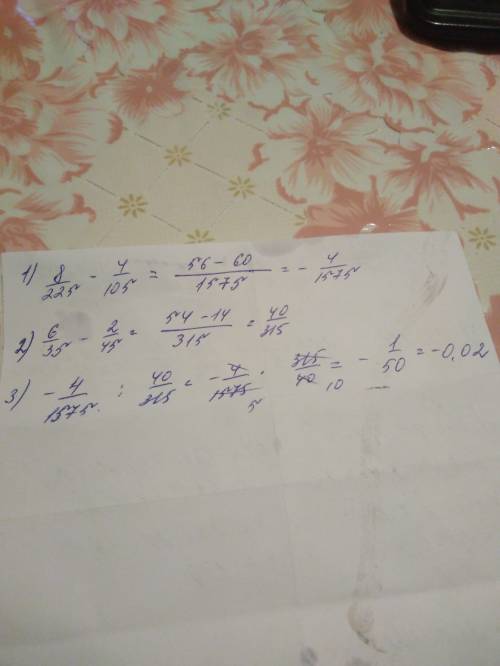 1) 8/225 - 4/105 = (56 - 60)/1575 = - 4/1575
2) 6/35 - 2/45 = (54 - 14)/315 = 40/315
3) - 4/1575 : 40/315 = - 4/1575 5 · 315/40 10 = - 1/50 = -0,02